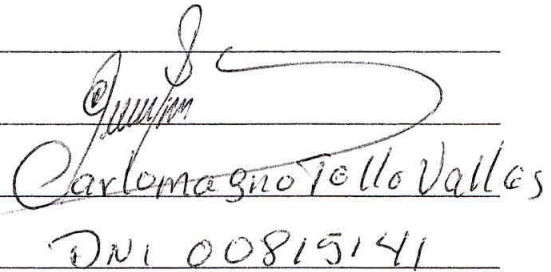 Carlomagno Tello Valles
DNI 00815141